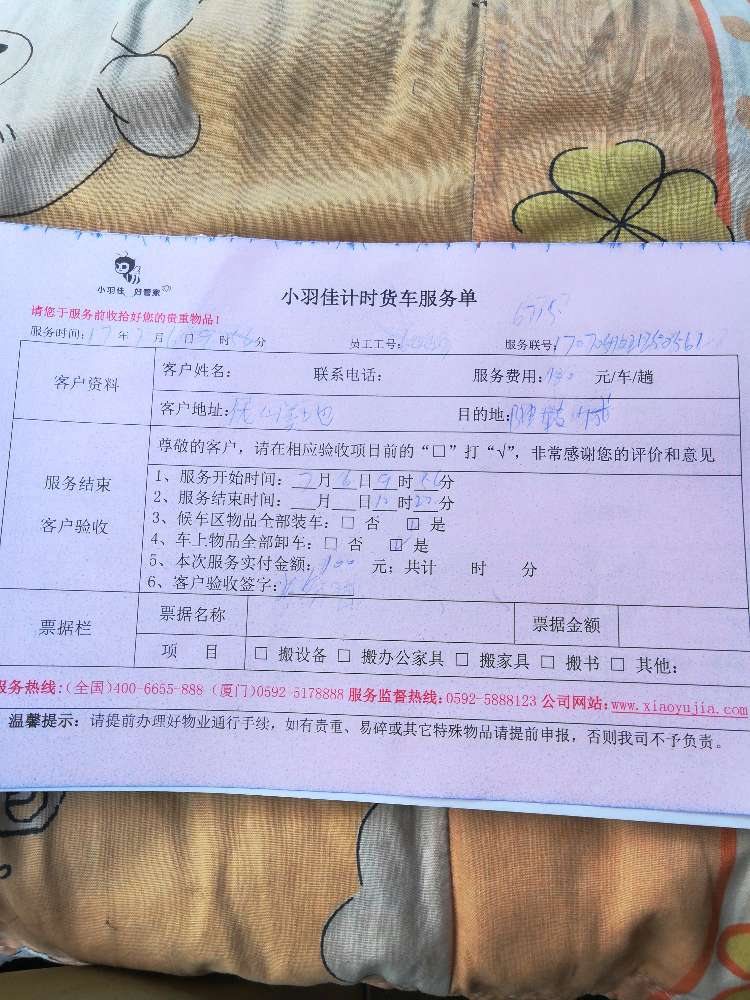 小羽佳 好管家
小羽佳计时货车服务单
请您于服务前收拾好您的贵重物品！
服务时间：17年7月6日9时56分 员工工号： 服务联号：
客户资料
客户姓名： 联系电话： 服务费用： 元/车/趟
客户地址： 目的地：
服务结束
客户验收
尊敬的客户，请在相应验收项目前的“□”打“√”，非常感谢您的评价和意见
1、服务开始时间：7月6日9时56分
2、服务结束时间： 月 日12时22分
3、候车区物品全部装车：□ 否 □ 是
4、车上物品全部卸车：□ 否 □ 是
5、本次服务实付金额：100 元；共计 时 分
6、客户验收签字：
票据栏
票据名称 票据金额
项 目 □ 搬设备 □ 搬办公家具 □ 搬家具 □ 搬书 □ 其他：
服务热线：（全国）400-6655-888（厦门）0592-5178888 服务监督热线：0592-5888123 公司网站：www.xiaoyujia.com
温馨提示：请提前办理好物业通行手续，如有贵重、易碎或其它特殊物品请提前申报，否则我司不予负责。